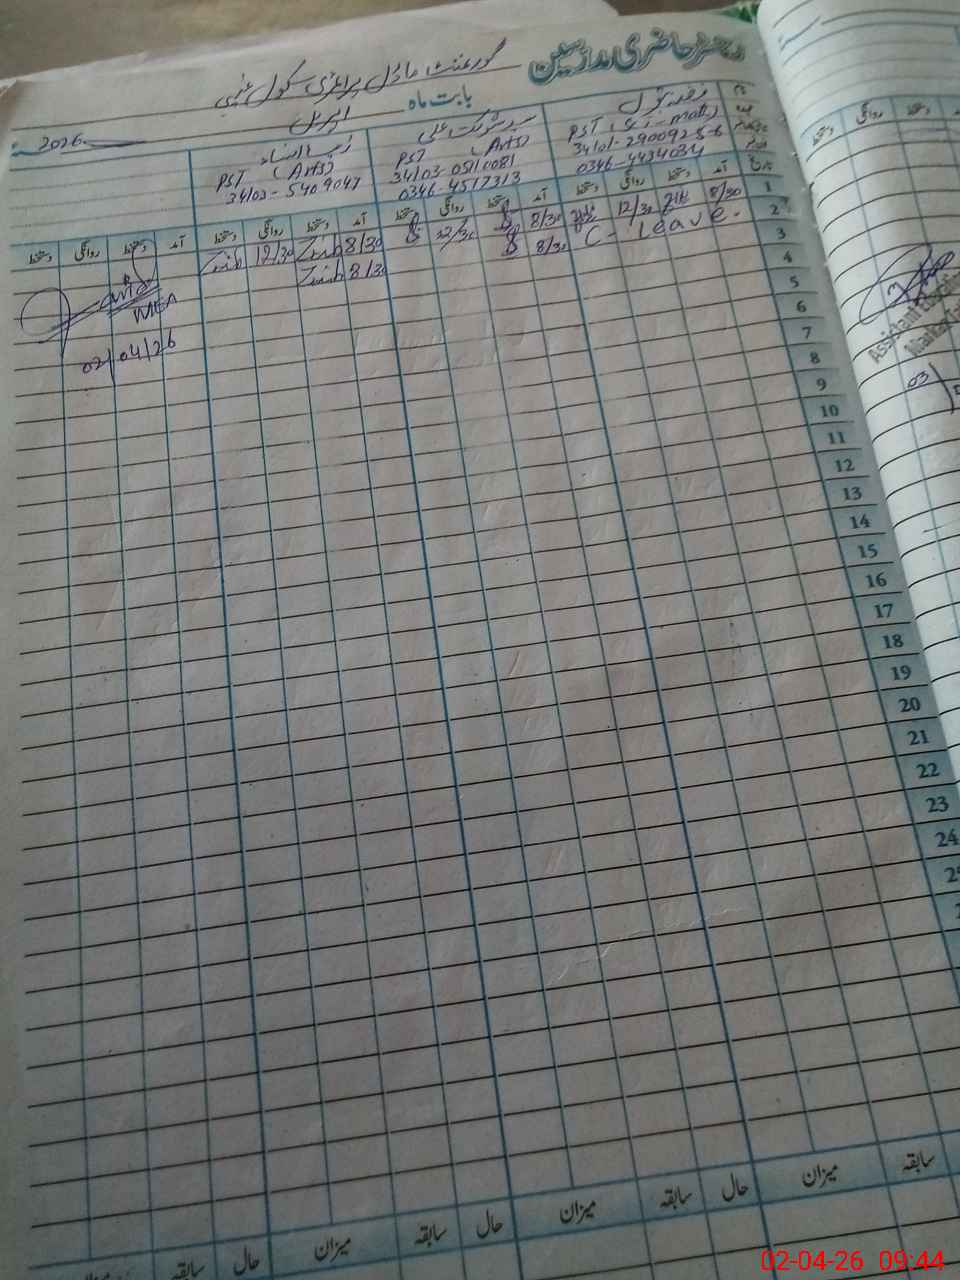 رجسٹر حاضری مدارسین
گورنمنٹ ماڈل پرائمری سکول
بابت ماہ اپریل 2026
نام
عہدہ
PST (Sci-math)
34101-290092-5-6
0346-4434034
سید شوکت علی
PST (Arts)
34103-0510081
0346-4517313
زیب النساء
PST (Arts)
34103-5409047
تاریخ آمد دستخط روانگی دستخط آمد دستخط روانگی دستخط آمد دستخط روانگی دستخط آمد دستخط روانگی دستخط
1 8/30 12/30 8/30 12/30 8/30 Zainb 12/30 Zainb
2 C- Leave. 8/30 8/30 Zainb
3
4
5
6
7
8
9
10
11
12
13
14
15
16
17
18
19
20
21
22
23
24
MEA
02/04/26
دستخط روانگی دستخط
Assistant
03
سابقہ میزان حال سابقہ میزان حال سابقہ میزان حال سابقہ
02-04-26 09:44